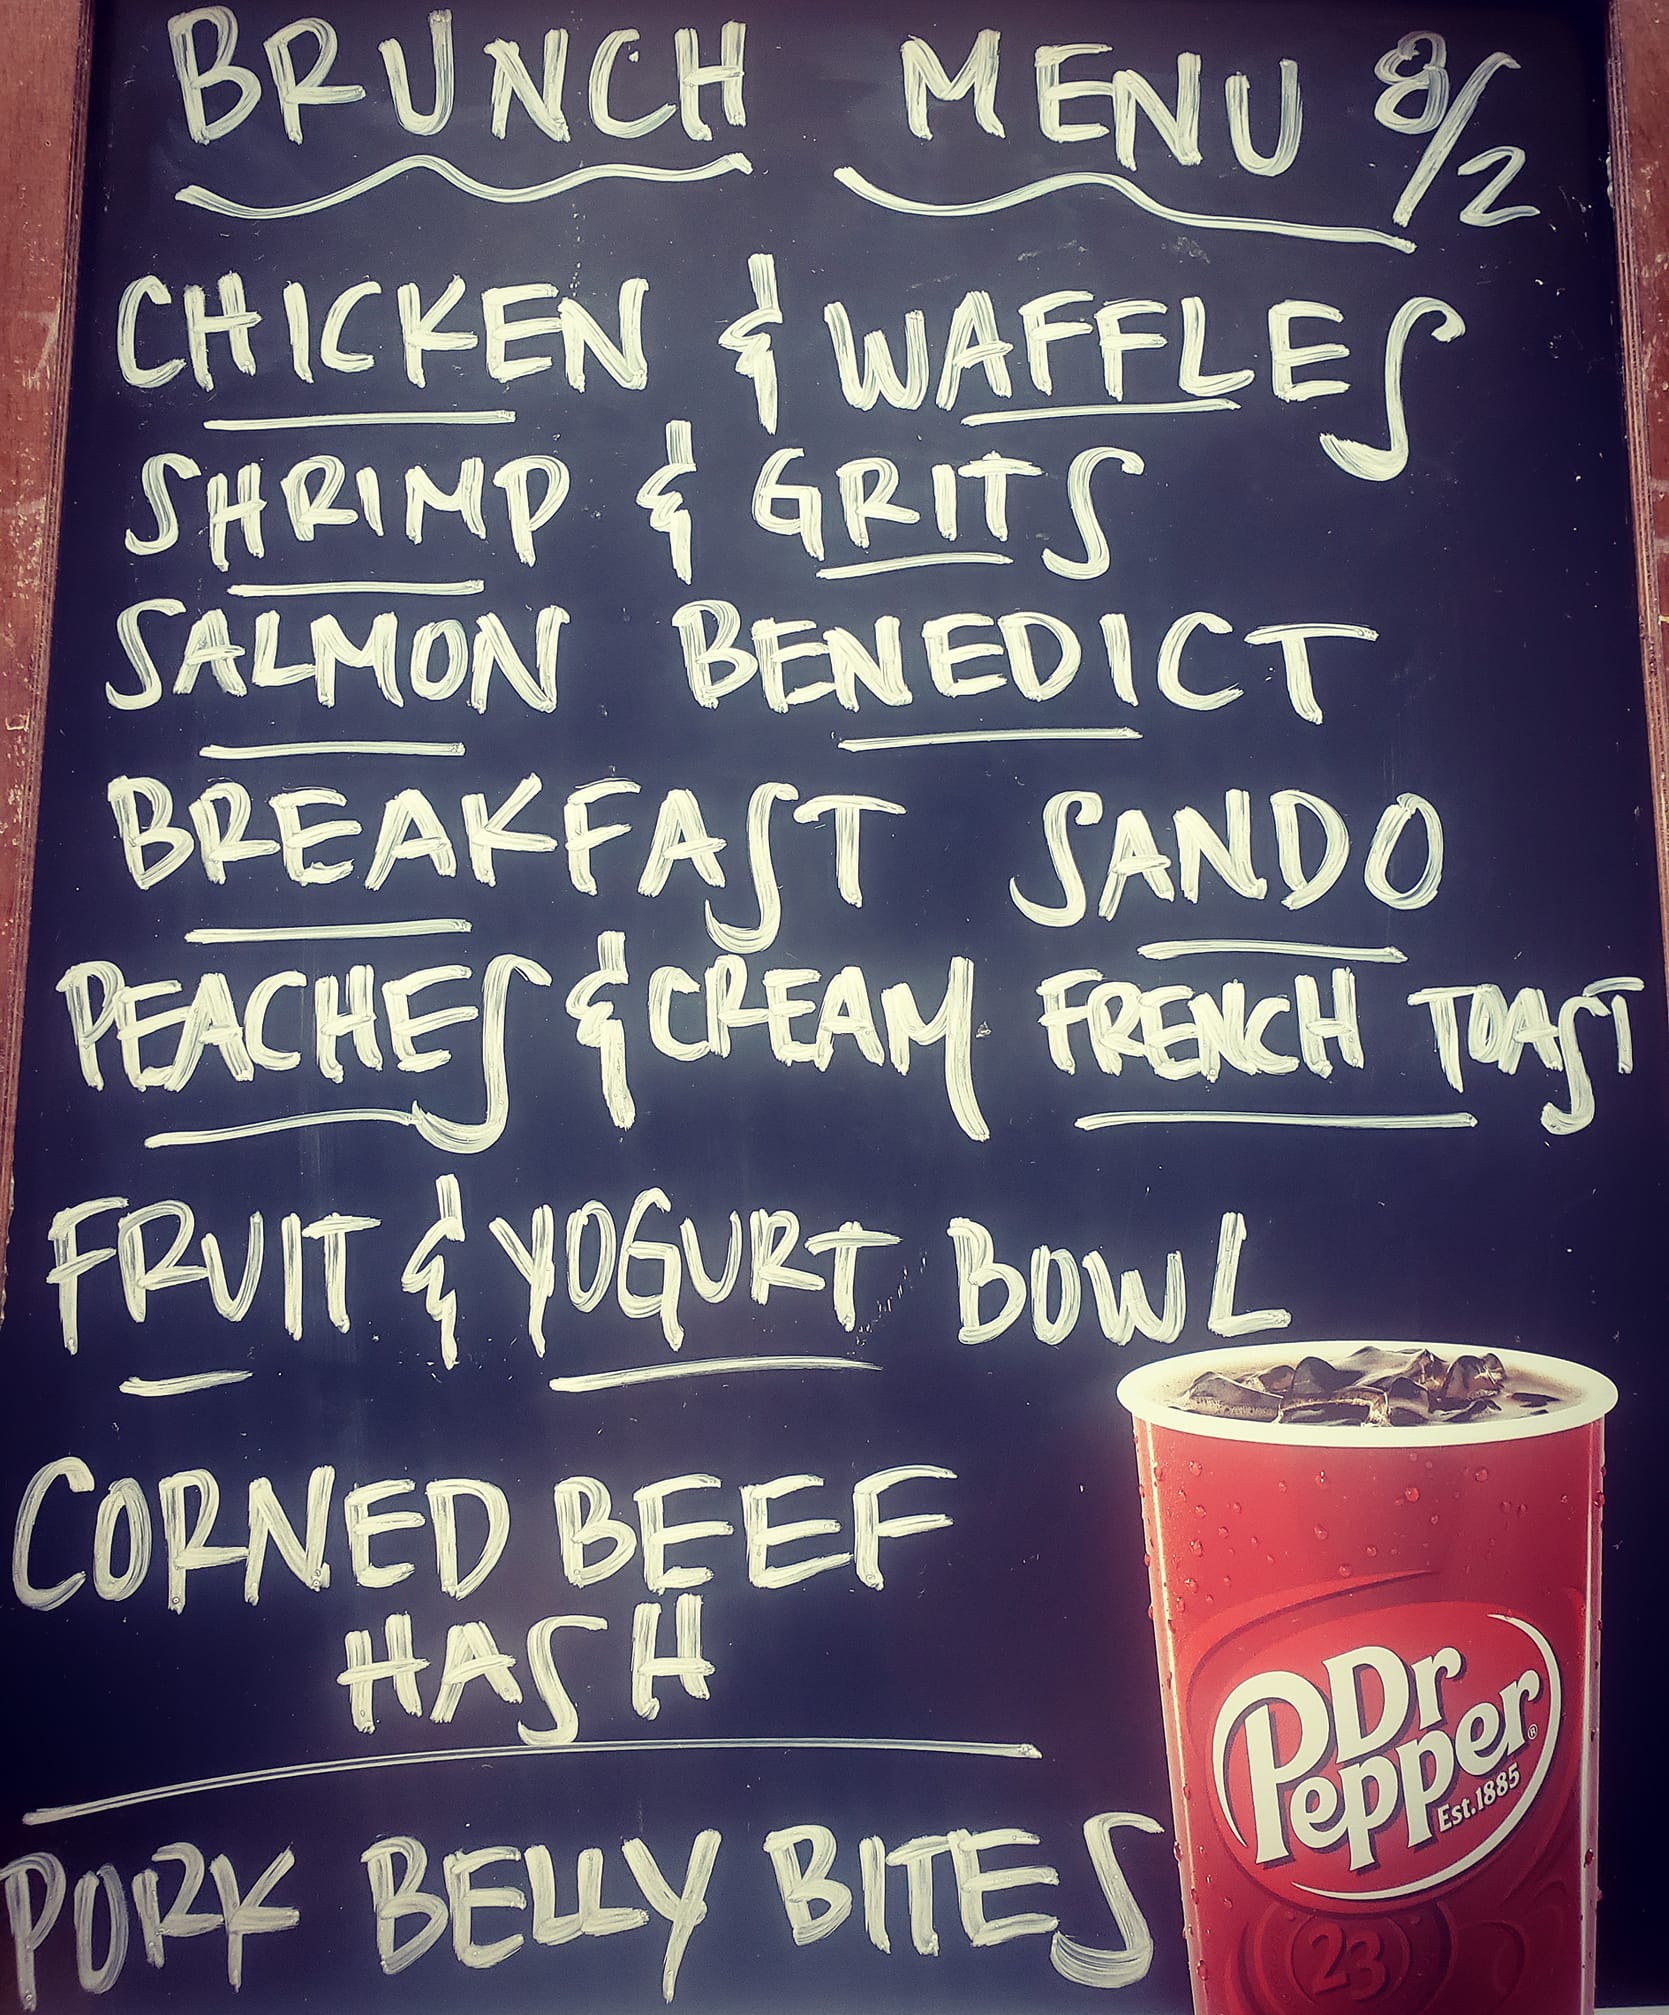 BRUNCH MENU 8/2
CHICKEN & WAFFLES
SHRIMP & GRITS
SALMON BENEDICT
BREAKFAST SANDO
PEACHES & CREAM FRENCH TOAST
FRUIT & YOGURT BOWL
CORNED BEEF
HASH
PORK BELLY BITES
Dr
Pepper®
Est.1885
23